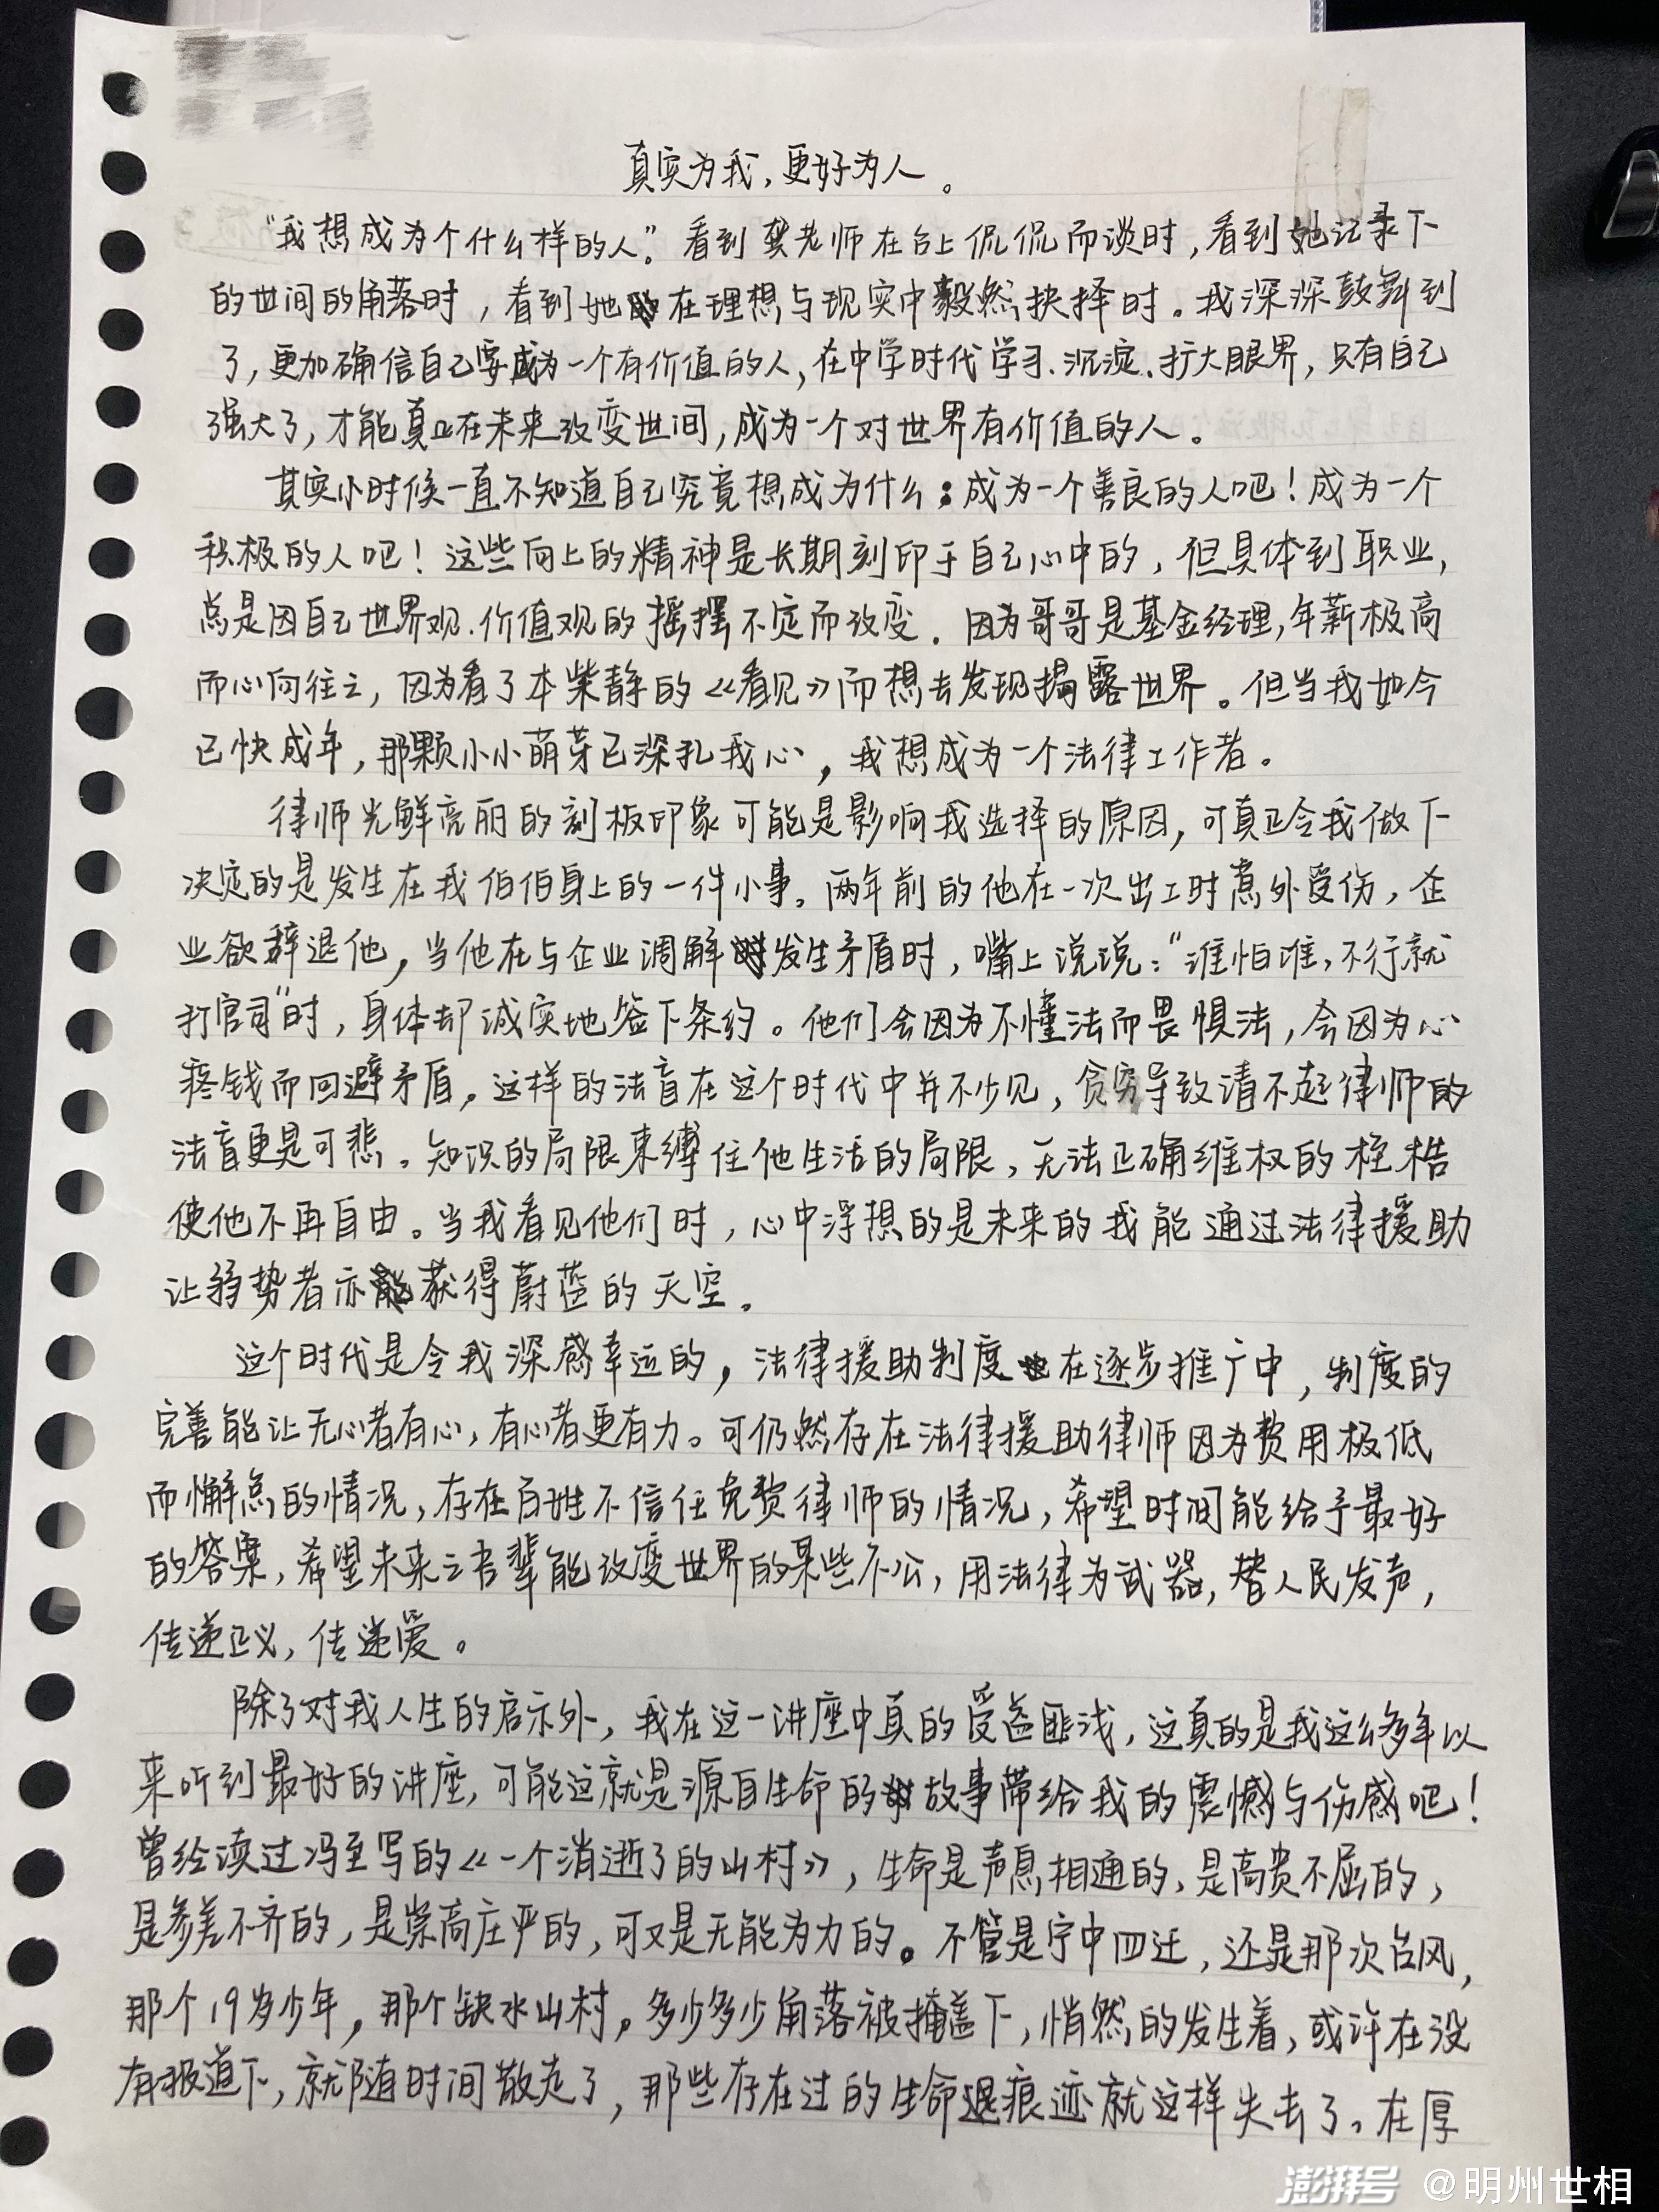 真实为我，更好为人。
“我想成为个什么样的人。”看到龚老师在台上侃侃而谈时，看到她记录下
的世间的角落时，看到她在理想与现实中毅然抉择时。我深深鼓舞到
了，更加确信自己要成为一个有价值的人，在中学时代学习、沉淀、扩大眼界，只有自己
强大了，才能真正在未来改变世间，成为一个对世界有价值的人。
其实小时候一直不知道自己究竟想成为什么；成为一个善良的人吧！成为一个
积极的人吧！这些向上的精神是长期刻印于自己心中的，但具体到职业，
总是因自己世界观、价值观的摇摆不定而改变。因为哥哥是基金经理，年薪极高
而心向往之，因为看了本柴静的《看见》而想去发现揭露世界。但当我如今
已快成年，那颗小小萌芽已深扎我心，我想成为一个法律工作者。
律师光鲜亮丽的刻板印象可能是影响我选择的原因，可真正令我做下
决定的是发生在我伯伯身上的一件小事。两年前的他在一次出工时意外受伤，企
业欲辞退他，当他在与企业调解发生矛盾时，嘴上说说：“谁怕谁，不行就
打官司”时，身体却诚实地签下条约。他们会因为不懂法而畏惧法，会因为心
疼钱而回避矛盾。这样的法盲在这个时代中并不少见，贫穷导致请不起律师的
法盲更是可悲。知识的局限束缚住他生活的局限，无法正确维权的桎梏
使他不再自由。当我看见他们时，心中浮想的是未来的我能通过法律援助
让弱势者亦能获得蔚蓝的天空。
这个时代是令我深感幸运的，法律援助制度在逐步推广中，制度的
完善能让无心者有心，有心者更有力。可仍然存在法律援助律师因为费用极低
而懈怠的情况，存在百姓不信任免费律师的情况，希望时间能给予最好
的答案，希望未来之吾辈能改变世界的某些不公，用法律为武器，替人民发声，
传递正义，传递爱。
除了对我人生的启示外，我在这一讲座中真的受益匪浅，这真的是我这么多年以
来听到最好的讲座，可能这就是源自生命的故事带给我的震憾与伤感吧！
曾经读过冯至写的《一个消逝了的山村》，生命是声息相通的，是高贵不屈的，
是参差不齐的，是崇高庄严的，可又是无能为力的。不管是宁中四迁，还是那次台风，
那个19岁少年，那个缺水山村，多少多少角落被掩盖下，悄然的发生着，或许在没
有报道下，就随时间散走了，那些存在过的生命痕迹就这样失去了。在厚
澎湃号 @明州世相